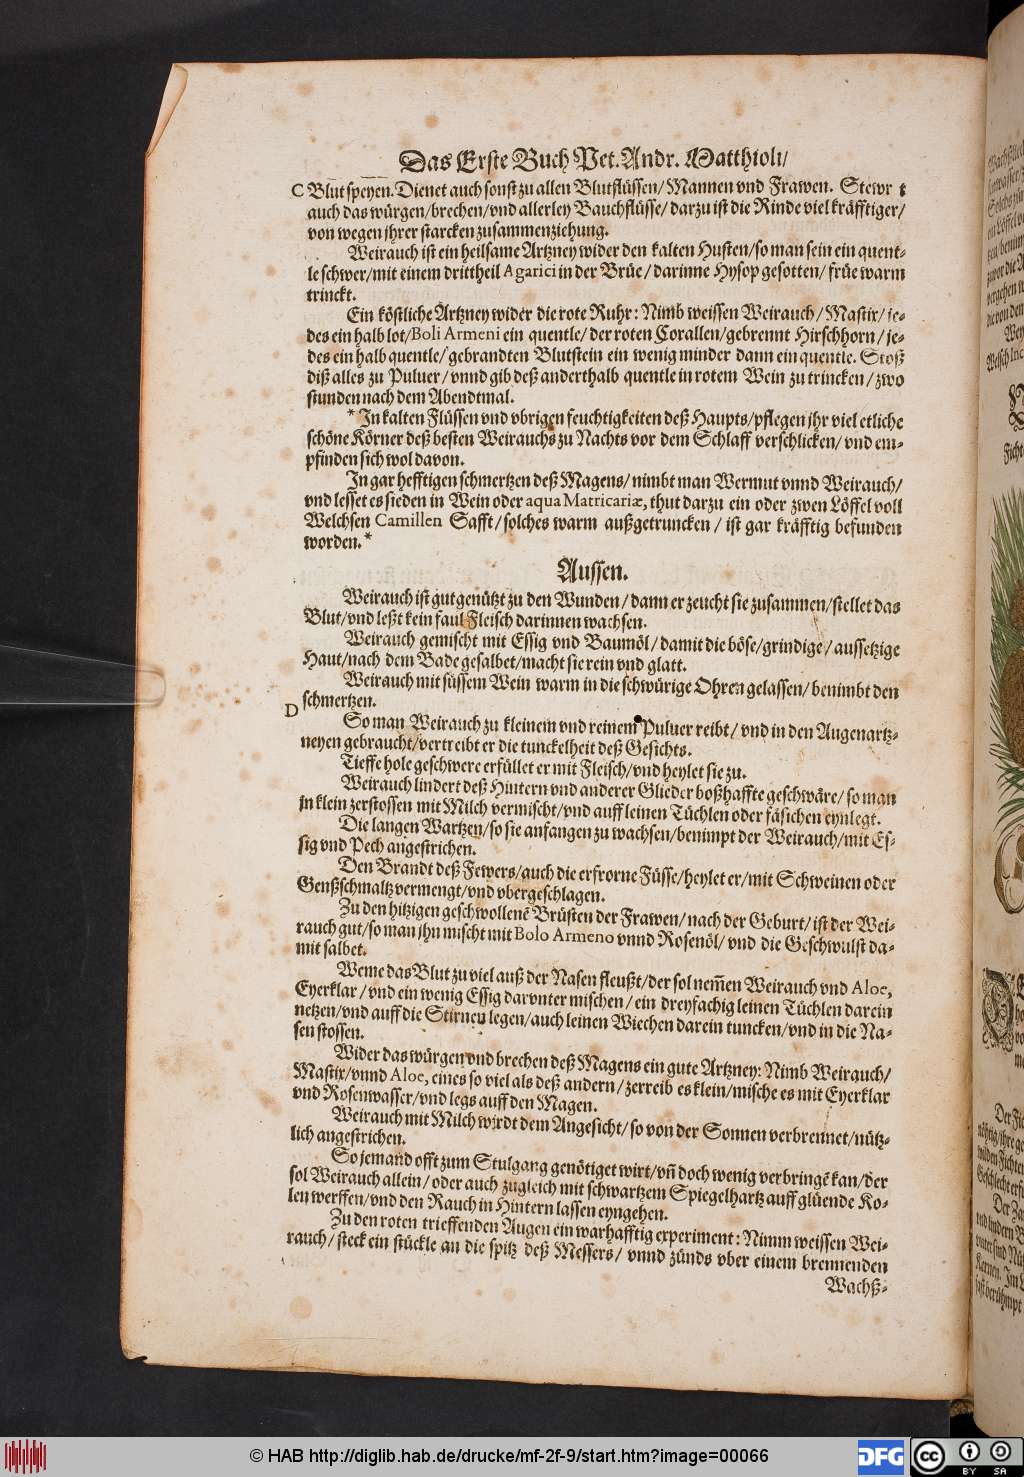 Das Erste Buch Pet. Andr. Matthioli/
C Blut speyen. Dienet auch sonst zu allen Blutflüssen/ Mannen vnd Frawen. Stewr t
auch das würgen/brechen/vnd allerley Bauchflüsse/ darzu ist die Rinde viel kräfftiger/
von wegen jhrer starcken zusammenziehung.
Weirauch ist ein heilsame Artzney wider den kalten Husten/so man sein ein quent-
le schwer/mit einem drittheil Agarici in der Brüe/ darinne Hysop gesotten/ früe warm
trinckt.
Ein köstliche Artzney wider die rote Ruhr: Nimb weissen Weirauch/ Mastix/ je-
des ein halb lot/Boli Armeni ein quentle/ der roten Corallen/gebrennt Hirschhorn/ je-
des ein halb quentle/ gebrandten Blutstein ein wenig minder dann ein quentle. Stoß
diß alles zu Puluer/ vnnd gib deß anderthalb quentle in rotem Wein zu trincken/ zwo
stunden nach dem Abendtmal.
* In kalten Flüssen vnd vbrigen feuchtigkeiten deß Haupts/pflegen jhr viel etliche
schöne Körner deß besten Weirauchs zu Nachts vor dem Schlaff verschlicken/ vnd em-
pfinden sich wol davon.
In gar hefftigen schmertzen deß Magens/ nimbt man Wermut vnnd Weirauch/
vnd lesset es sieden in Wein oder aqua Matricariæ, thut darzu ein oder zwen Löffel voll
Welchsen Camillen Safft/ solches warm außgetruncken/ ist gar kräfftig befunden
worden.*
Aussen.
Weirauch ist gut genützt zu den Wunden/ dann er zeucht sie zusammen/stellet das
Blut/vnd leßt kein faul Fleisch darinnen wachsen.
Weirauch gemischt mit Essig vnd Baumöl/ damit die böse/grindige/ aussetzige
Haut/nach dem Bade gesalbet/macht sie rein vnd glatt.
Weirauch mit süssem Wein warm in die schwürige Ohren gelassen/ benimbt den
D schmertzen.
So man Weirauch zu kleinem vnd reinem Puluer reibt/ vnd in den Augenartz-
neyen gebraucht/vertreibt er die tunckelheit deß Gesichts.
Tieffe hole geschwere erfüllet er mit Fleisch/vnd heylet sie zu.
Weirauch lindert deß Hintern vnd anderer Glieder boßhaffte geschwäre/ so man
jn klein zerstossen mit Milch vermischt/vnd auff leinen Tüchlen oder fäsichen eynlegt.
Die langen Wartzen/so sie anfangen zu wachsen/benimpt der Weirauch/mit Es-
sig vnd Pech angestrichen.
Den Brandt deß Fewers/auch die erfrorne Füsse/heylet er/mit Schweinen oder
Genßschmaltz vermengt/vnd vbergeschlagen.
Zu den hitzigen geschwollenē Brüsten der Frawen/ nach der Geburt/ ist der Wei-
rauch gut/so man jhn mischt mit Bolo Armeno vnnd Rosenöl/ vnd die Geschwulst da-
mit salbet.
Weme das Blut zu viel auß der Nasen fleußt/der sol nem̄en Weirauch vnd Aloe,
Eyerklar/ vnd ein wenig Essig darvnter mischen/ ein dreyfachig leinen Tüchlen darein
netzen/vnd auff die Stirnen legen/auch leinen Wiechen darein tuncken/vnd in die Na-
sen stossen.
Wider das würgen vnd brechen deß Magens ein gute Artzney: Nimb Weirauch/
Mastix/vnnd Aloe, eines so viel als deß andern/ zerreib es klein/mische es mit Eyerklar
vnd Rosenwasser/vnd legs auff den Magen.
Weirauch mit Milch wirdt dem Angesicht/ so von der Sonnen verbrennet/nütz-
lich angestrichen.
So jemand offt zum Stulgang genötiget wirt/vn̄ doch wenig verbringē kan/der
sol Weirauch allein/ oder auch zugleich mit schwartzem Spiegelhartz auff glüende Ko-
len werffen/vnd den Rauch in Hintern lassen eyngehen.
Zu den roten trieffenden Augen ein warhafftig experiment: Nimm weissen Wei-
rauch/ steck ein stückle an die spitz deß Messers/ vnnd zünds vber einem brennenden
Wachß-
© HAB http://diglib.hab.de/drucke/mf-2f-9/start.htm?image=00066
DFG
cc BY SA